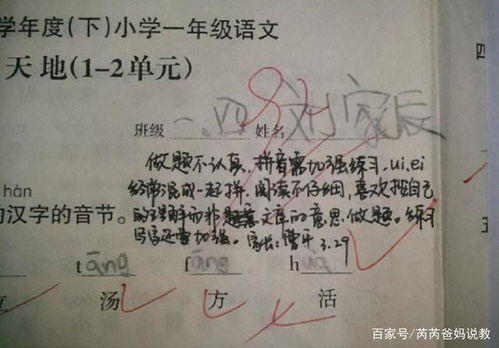 学年度(下)小学一年级语文
天地(1-2单元)
班级 一.四 姓名 刘家辰
做题不认真，拼音需加强练习，ui、ei
经常混成一起拼，阅读不仔细，喜欢按自己
的理解而非文章的意思做题。练习
写字还要加强。家长: 3.29
hàn
的汉字的音节。
tāng f h
汤 方 活
四
三
五
百家号/芮芮爸妈说教